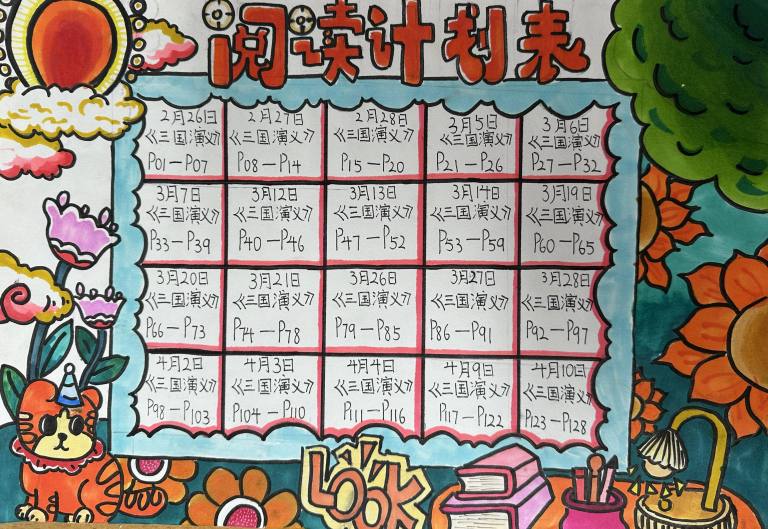 阅读计划表
2月26日
《三国演义》
P01—P07
2月27日
《三国演义》
P08—P14
2月28日
《三国演义》
P15—P20
3月5日
《三国演义》
P21—P26
3月6日
《三国演义》
P27—P32
3月7日
《三国演义》
P33—P39
3月12日
《三国演义》
P40—P46
3月13日
《三国演义》
P47—P52
3月14日
《三国演义》
P53—P59
3月19日
《三国演义》
P60—P65
3月20日
《三国演义》
P66—P73
3月21日
《三国演义》
P74—P78
3月26日
《三国演义》
P79—P85
3月27日
《三国演义》
P86—P91
3月28日
《三国演义》
P92—P97
4月2日
《三国演义》
P98—P103
4月3日
《三国演义》
P104—P110
4月4日
《三国演义》
P111—P116
4月9日
《三国演义》
P117—P122
4月10日
《三国演义》
P123—P128
LOOK